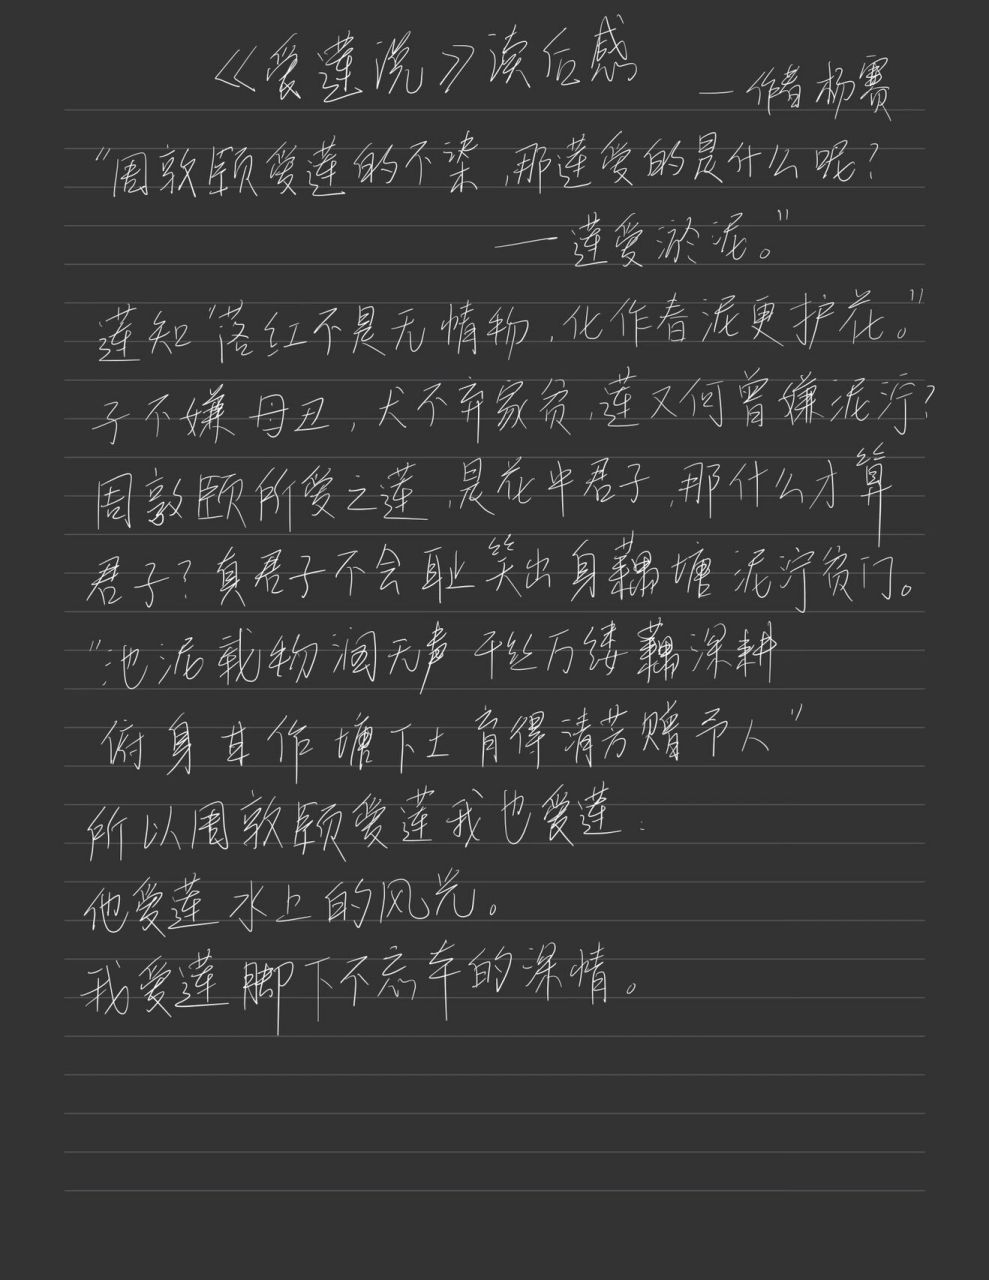 《爱莲说》读后感
—作者杨赛
“周敦颐爱莲的不染,那莲爱的是什么呢?
——莲爱淤泥。”
莲知“落红不是无情物,化作春泥更护花。”
子不嫌母丑,犬不弃家贫,莲又何曾嫌泥泞?
周敦颐所爱之莲,是花中君子,那什么才算
君子?真君子不会耻笑出身藕塘泥泞贫门。
“池泥载物润无声 千丝万缕藕深耕
俯身甘作塘下土 育得清芳赠予人”
所以周敦颐爱莲我也爱莲:
他爱莲水上的风光。
我爱莲脚下不忘本的深情。